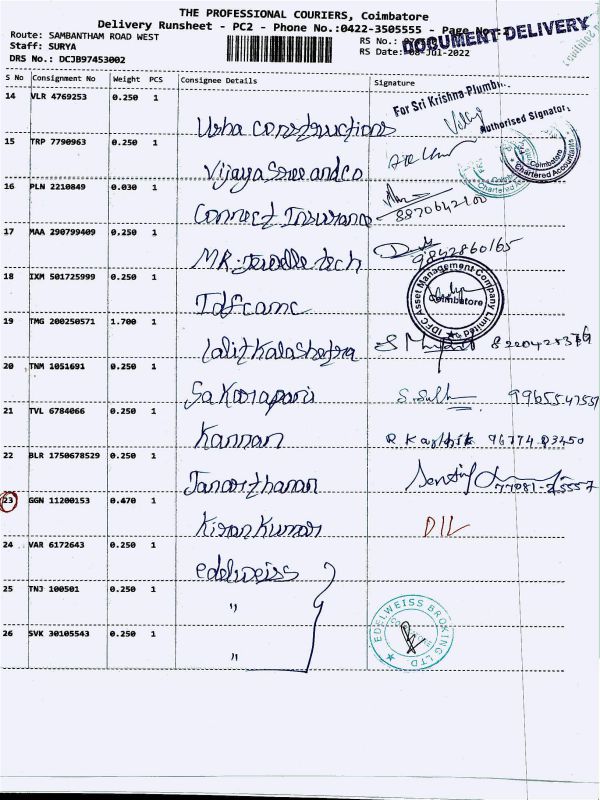 THE PROFESSIONAL COURIERS, Coimbatore
Delivery Runsheet - PC2 - Phone No.:0422-3505555 - Page No.
Route: SAMBANTHAM ROAD WEST
Staff: SURYA
DRS No.: DCJB97453002
RS No.:
RS Date: 08-Jul-2022
DOCUMENT DELIVERY
S No Consignment No Weight PCS Consignee Details Signature
14 VLR 4769253 0.250 1 Usha constructions
For Sri Krishna Plumbi
Authorised Signator
15 TRP 7790963 0.250 1 Vijaya Sree and co
Coimbatore
Chartered Accountants
16 PLN 2210849 0.030 1 Connect Insurance 8870642100
17 MAA 290799409 0.250 1 MR. Jewelle tech 9842860165
18 IXM 501725999 0.250 1 Idfc amc
IDFC Asset Management Company Limited
Coimbatore
19 TMG 200250571 1.700 1 Lalit Kalashetra
20 TNM 1051691 0.250 1 Sakthi
21 TVL 6784066 0.250 1 Kannan R Karthik 96774 03450
22 BLR 1750678529 0.250 1 Janarthanan 77081-75557
23 GGN 11200153 0.470 1 Kiran Kumar DIL
24 VAR 6172643 0.250 1 edelweiss
25 TNJ 100501 0.250 1 "
26 SVK 30105543 0.250 1 "
EDELWEISS BROKING LTD